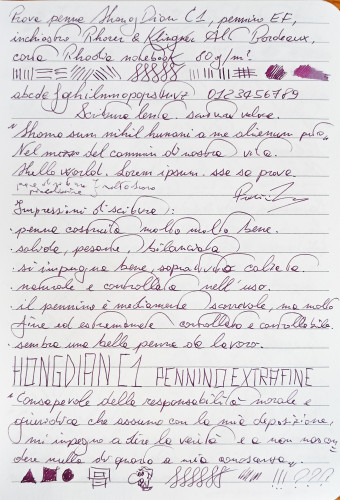 Prova penna HongDian C1, pennino EF,
inchiostro Rhorer & Klingner Alt Bordeaux,
carta Rhodia notebook 80 g/m².
abcdefghilmnopqrstuvz 0123456789
Scrittura lenta. scrittura veloce.
"Homo sum nihil humani a me alienum puto"
Nel mezzo del cammin di nostra vita.
Hello world. Lorem ipsum. sse sa prova.
Impressioni di scrittura:
· penna costruita molto molto bene.
· solida, pesante, bilanciata
· si impugna bene, soprattutto calzata.
· naturale e controllata nell'uso.
· il pennino è mediamente scorrevole, ma molto
fine ed estremamente controllato e controllabile.
· sembra una bella penna da lavoro.
HONGDIAN C1 PENNINO EXTRAFINE
"Consapevole della responsabilità morale e
giuridica che assumo con la mia deposizione,
mi impegno a dire la verità e a non nascon
dere nulla di quanto a mia conoscenza".
!!! ???